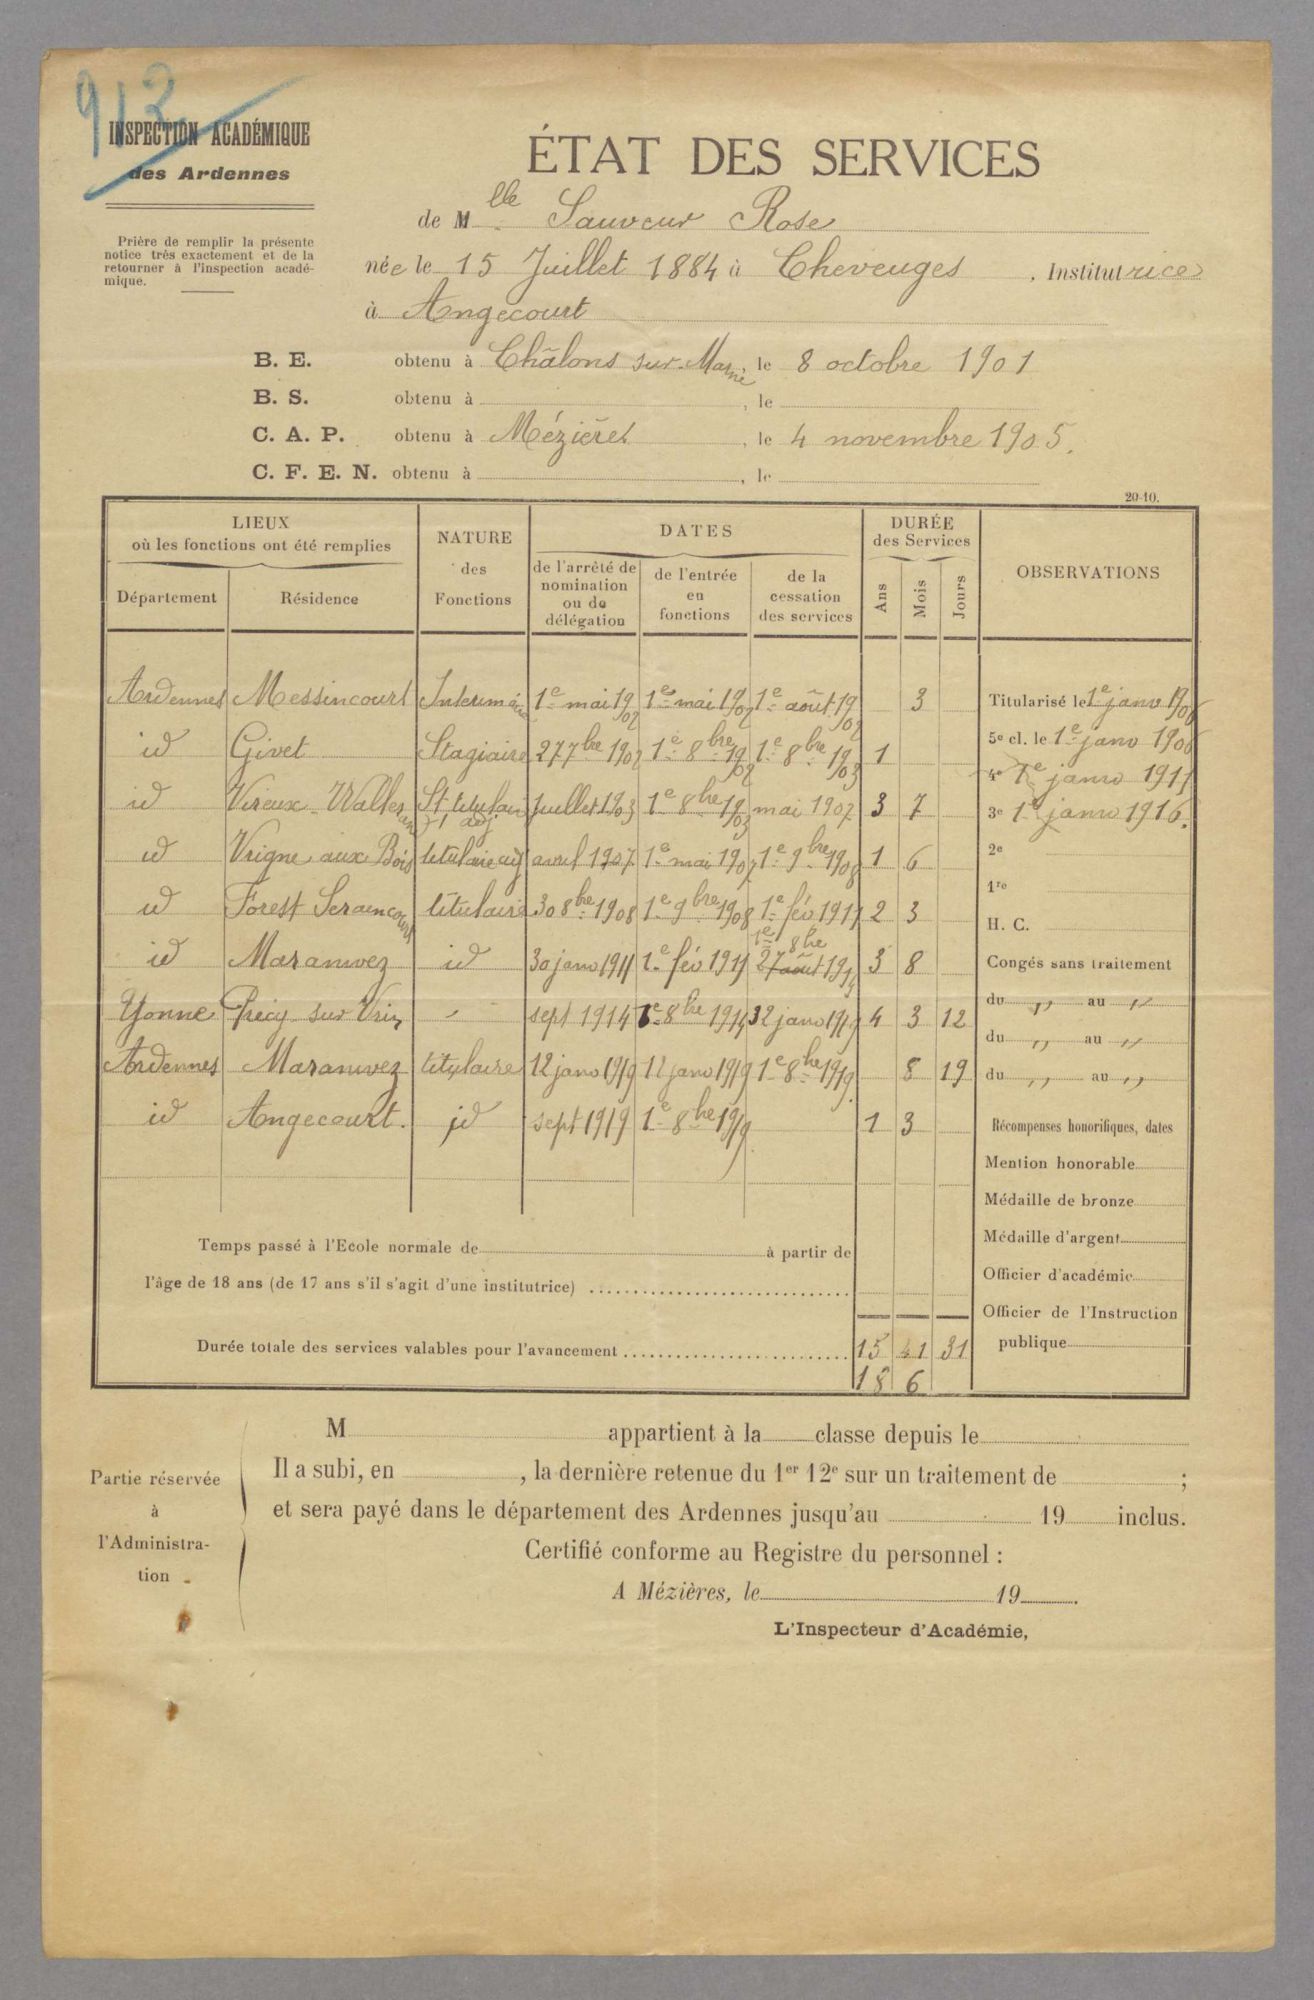 913
INSPECTION ACADÉMIQUE
des Ardennes
Prière de remplir la présente
notice très exactement et de la
retourner à l'inspection acadé-
mique.
ÉTAT DES SERVICES
de Mlle Sauveur Rose
née le 15 Juillet 1884 à Cheveuges, Institutrice
à Angecourt
B. E. obtenu à Châlons sur Marne, le 8 octobre 1901
B. S. obtenu à , le
C. A. P. obtenu à Mézières, le 4 novembre 1905.
C. F. E. N. obtenu à , le
20-10.
LIEUX
où les fonctions ont été remplies
Département
Résidence
NATURE
des
Fonctions
DATES
de l'arrêté de
nomination
ou de
délégation
de l'entrée
en
fonctions
de la
cessation
des services
DURÉE
des Services
Ans
Mois
Jours
OBSERVATIONS
Ardennes Messincourt Intérimaire 1e mai 1902 1e mai 1902 1e août 1902 3
id Givet Stagiaire 27 7bre 1902 1e 8bre 1902 1e 8bre 1903 1
id Vireux-Wallerand St. titulaire adj Juillet 1903 1e 8bre 1903 mai 1907 3 7
id Vrigne aux Bois titulaire adj avril 1907 1e mai 1907 1e 9bre 1908 1 6
id Forest Seraincourt titulaire 30 8bre 1908 1e 9bre 1908 1e fév 1911 2 3
id Maranwez id 30 janv 1911 1e fév 1911 27 août 1e 8bre 1914 3 8
Yonne Précy sur Vrin - sept 1914 1e 8bre 1914 12 janv 1919 4 3 12
Ardennes Maranwez titulaire 12 janv 1919 12 janv 1919 1e 8bre 1919. 8 19
id Angecourt. id sept 1919 1e 8bre 1919 1 3
Titularisé le 1e janv 1906
5e cl. le 1e janv 1906
4e 1e janv 1911
3e 1e janv 1916.
2e
1re
H. C.
Congés sans traitement
du ,, au ,,
du ,, au ,,
du ,, au ,,
Récompenses honorifiques, dates
Mention honorable
Médaille de bronze
Médaille d'argent
Officier d'académie
Officier de l'Instruction
publique
Temps passé à l'Ecole normale de à partir de
l'âge de 18 ans (de 17 ans s'il s'agit d'une institutrice)
Durée totale des services valables pour l'avancement 15 41 31
18 6
Partie réservée
à
l'Administra-
tion
M appartient à la classe depuis le
Il a subi, en , la dernière retenue du 1er 12e sur un traitement de ;
et sera payé dans le département des Ardennes jusqu'au 19 inclus.
Certifié conforme au Registre du personnel :
A Mézières, le 19 .
L'Inspecteur d'Académie,